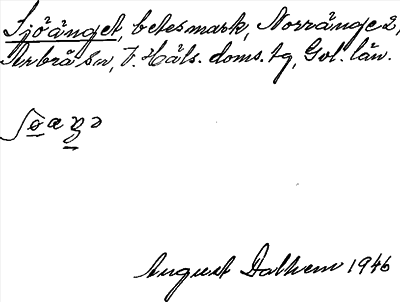 Sjöänget, betesmark, Norränge 2,
Arbrå sn, V. Häls. doms. tg, Gvl. län.
August Dalhem 1946